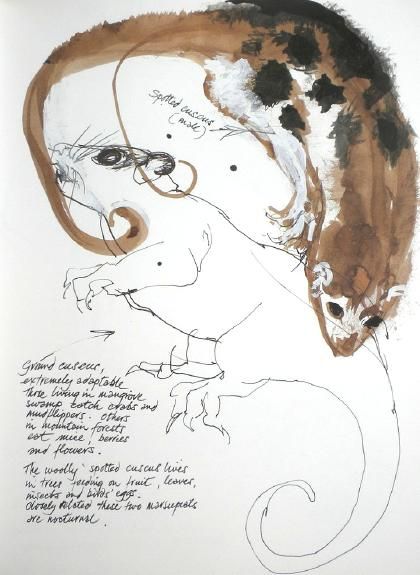 Spotted cuscus
(male)
Ground cuscus,
extremely adaptable
those living in mangrove
swamp catch crabs and
mudskippers. Others
in mountain forests
eat mice, berries
and flowers.
The woolly spotted cuscus lives
in trees feeding on fruit, leaves,
insects and birds' eggs.
Closely related these two marsupials
are nocturnal.